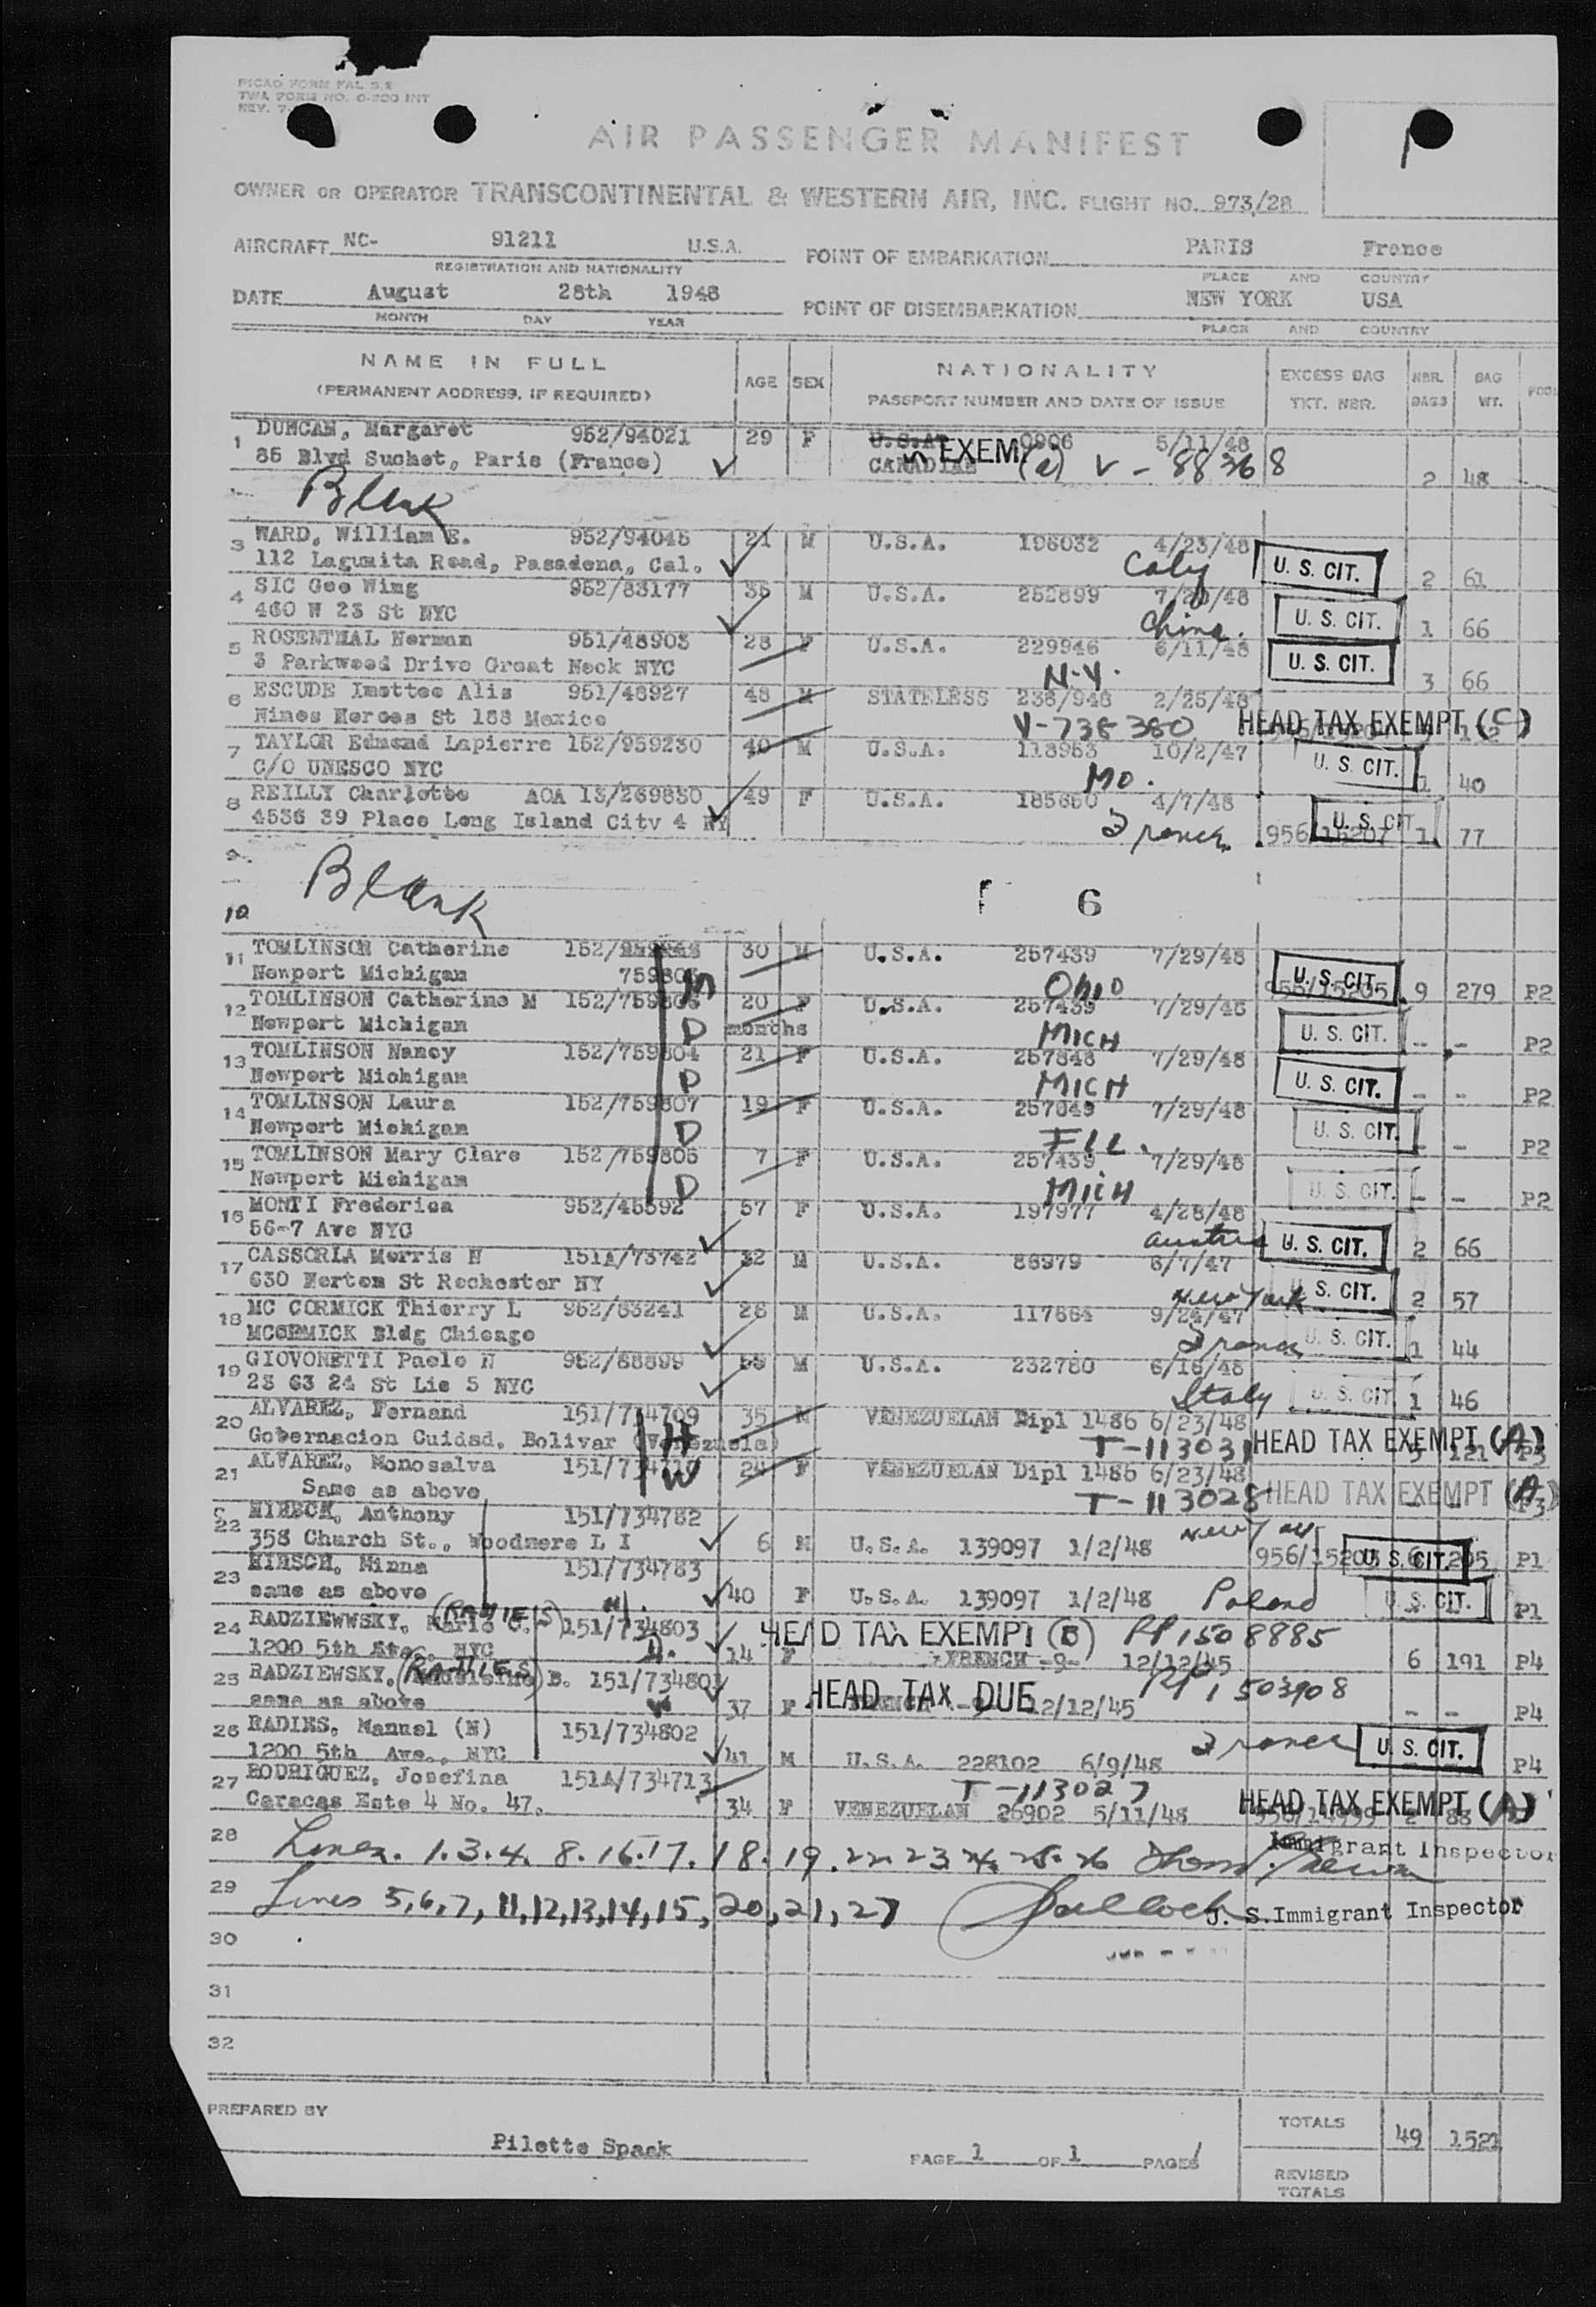 PICAO FORM FAL 5.2
TWA FORM NO. 0-300 INT
REV. 7-
AIR PASSENGER MANIFEST
OWNER OR OPERATOR TRANSCONTINENTAL & WESTERN AIR, INC. FLIGHT NO. 973/28
AIRCRAFT NC- 91211 U.S.A. POINT OF EMBARKATION PARIS France
REGISTRATION AND NATIONALITY PLACE AND COUNTRY
DATE August 28th 1948 POINT OF DISEMBARKATION NEW YORK USA
MONTH DAY YEAR PLACE AND COUNTRY
NAME IN FULL AGE SEX NATIONALITY EXCESS BAG NBR. BAG
(PERMANENT ADDRESS, IF REQUIRED) PASSPORT NUMBER AND DATE OF ISSUE TKT. NBR. BAGS WT. POOL
1 DUNCAN, Margaret 952/94021 29 F U.S.A. 0996 5/11/48
85 Blvd Suchet, Paris (France) CANADIAN EXEM (a) V-88368 2 48
Blank
3 WARD, William E. 952/94045 21 M U.S.A. 196032 4/23/48
112 Lagunita Road, Pasadena, Cal. Caly U. S. CIT. 2 61
4 SIC Gee Wing 952/83177 35 M U.S.A. 252899 7/20/48
460 W 23 St NYC China. U. S. CIT. 1 66
5 ROSENTHAL Norman 951/48903 28 F U.S.A. 229946 6/11/48
3 Parkwood Drive Great Neck NYC N.Y. U. S. CIT. 3 66
6 ESCUDE Imettee Alis 951/48927 48 M STATELESS 236/948 2/25/48
Nines Heroes St 188 Mexico V-738380 HEAD TAX EXEMPT (C)
7 TAYLOR Edmond Lapierre 152/959230 40 M U.S.A. 118953 10/2/47
C/O UNESCO NYC MO. U. S. CIT. 1 40
8 REILLY Charlotte AOA 13/269830 49 F U.S.A. 185650 4/7/48
4536 39 Place Long Island City 4 NY France U. S. CIT 956/15207 1 77
9
Blank 6
10
11 TOMLINSON Catherine 152/ 30 M U.S.A. 257439 7/29/48
Newport Michigan M OHIO U. S. CIT. 956/15205 9 279 P2
12 TOMLINSON Catherine M 152/759806 20 F U.S.A. 257439 7/29/48
Newport Michigan D months MICH U. S. CIT. - - P2
13 TOMLINSON Nancy 152/759804 21 F U.S.A. 257848 7/29/48
Newport Michigan D MICH U. S. CIT. - - P2
14 TOMLINSON Laura 152/759807 19 F U.S.A. 257849 7/29/48
Newport Michigan D ILL. U. S. CIT. - - P2
15 TOMLINSON Mary Clare 152/759805 7 F U.S.A. 257439 7/29/48
Newport Michigan D MICH U. S. CIT. - - P2
16 MONTI Frederica 952/45592 57 F U.S.A. 197977 4/28/48
56-7 Ave NYC Austria U. S. CIT. 2 66
17 CASSORLA Morris H 151A/73742 32 M U.S.A. 86979 6/7/47
630 Merton St Rochester NY New York S. CIT. 2 57
18 MC CORMICK Thierry L 952/83241 26 M U.S.A. 117664 9/24/47
MCORMICK Bldg Chicago France U. S. CIT. 1 44
19 GIOVONETTI Paolo N 952/88899 59 M U.S.A. 232780 6/16/48
23 63 24 St Lic 5 NYC Italy U. S. CIT 1 46
20 ALVAREZ, Fernand 151/734709 35 M VENEZUELAN Dipl 1486 6/23/48
Gobernacion Cuidad, Bolivar (Venezuela) H T-113031 HEAD TAX EXEMPT (A) 5 121 P3
21 ALVAREZ, Monosalva 151/734710 24 F VENEZUELAN Dipl 1486 6/23/48
Same as above W T-113028 HEAD TAX EXEMPT (A) P3
22 HIRSCH, Anthony 151/734782
358 Church St., Woodmere L I 6 M U.S.A. 139097 1/2/48 New York 956/15203 U. S. CIT. 6 205 P1
23 HIRSCH, Minna 151/734783
same as above 40 F U.S.A. 139097 1/2/48 Poland U. S. CIT. P1
24 RADZIEWWSKY, Marie C. (RADIES) 151/734803 HEAD TAX EXEMPT (B) PP 1508885
1200 5th Ave. NYC D. 14 F FRENCH -9- 12/12/45 6 191 P4
25 RADZIEWSKY, Madeleine B. (RADIES) 151/734801 HEAD TAX DUE PP 1503908
same as above W 37 F FRENCH -9- 12/12/45 - - P4
26 RADIES, Manuel (N) 151/734802
1200 5th Ave., NYC 41 M U.S.A. 228102 6/9/48 France U. S. CIT. P4
27 RODRIGUEZ, Josefina 151A/734713 T-113027
Caracas Este 4 No. 47. 34 F VENEZUELAN 26902 5/11/48 HEAD TAX EXEMPT (A) 956/14999 2 88
28 Lines. 1.3.4. 8.16.17. 18. 19. 22 23 24. 25. 26 Immigrant Inspector
29 Lines 5,6,7, 11,12,13,14,15, 20, 21, 27 J. S. Immigrant Inspector
30
31
32
PREPARED BY TOTALS 49 1521
Pilette Spack PAGE 1 OF 1 PAGES
REVISED
TOTALS